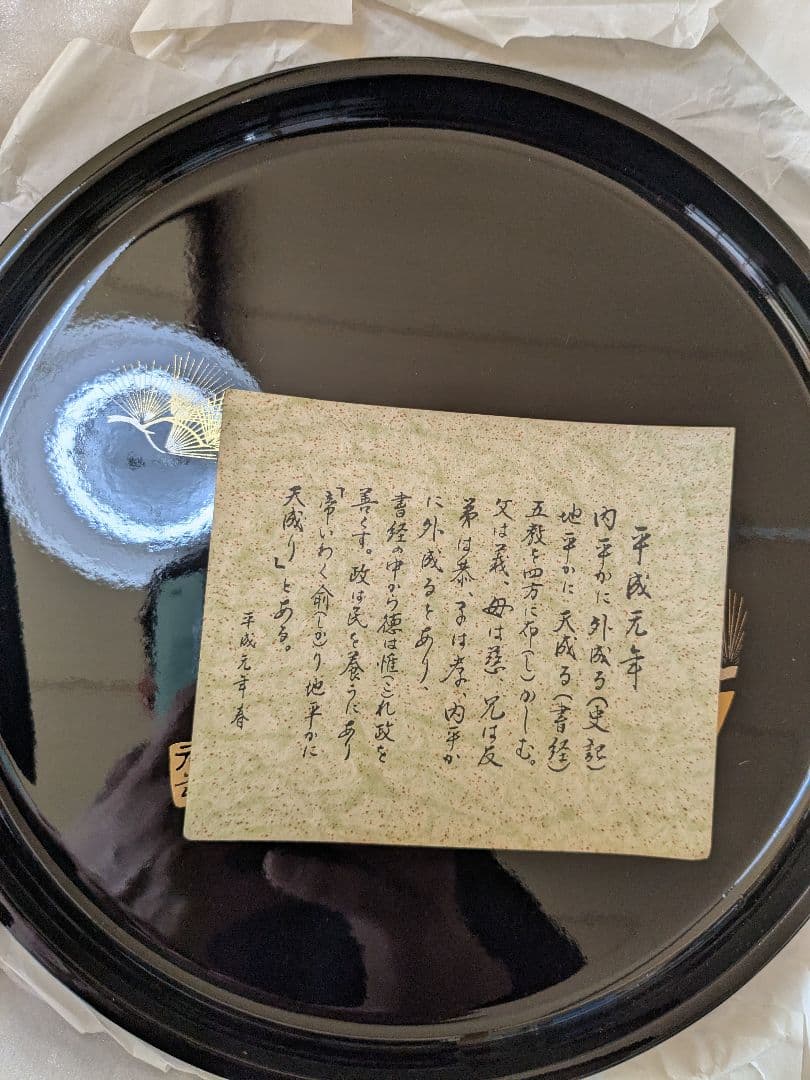 平成元年
内平かに外成る(史記)
地平かに天成る(書経)
五教を四方に布(し)かしむ。
父は義、母は慈 兄は友
弟は恭、子は孝、内平か
に外成るとあり、
書経の中から徳は惟(これ政を
善くす。政は民を養うにあり
「帝いわく俞(しか)り地平かに
天成り」とある。
平成元年春
元